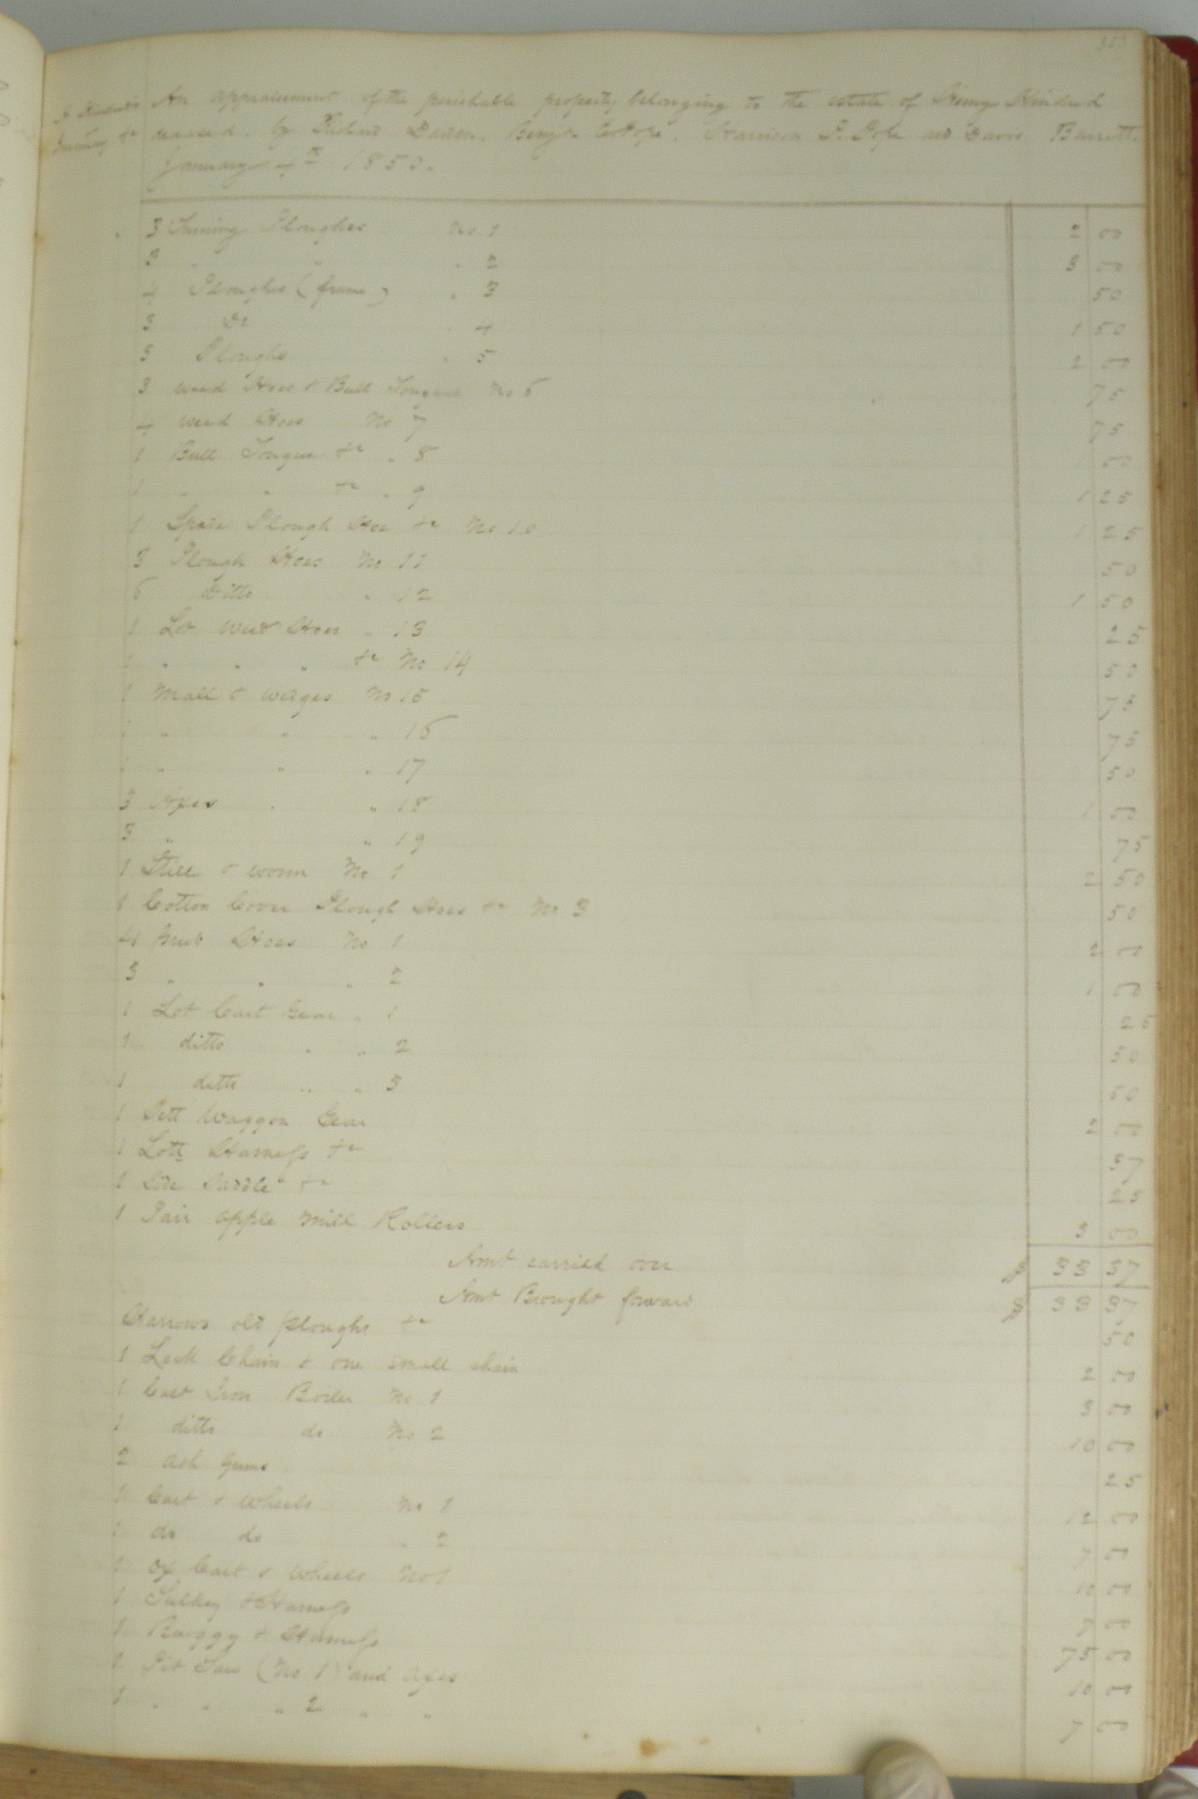 An appraisement of the perishable property belonging to the estate of Henry Kindred
deceased. by Richard Darden. Benjn Pope. Harrison P. Pope and Davis Barrett.
January 4th 1853.
3 Turning Ploughes No. 1 2 00
3 " " " 2 3 00
4 Ploughs (frame) " 3 50
3 Do " 4 1 50
3 Ploughs " 5 2 00
3 weed Hoes & Bull Tongues No 6 75
4 weed Hoes No 7 75
1 Bull Tongue &c " 8 1 00
1 " " &c " 9 1 25
1 Spare Plough Hoe &c No 10 1 25
5 Plough Hoes No 11 50
6 Ditto " 12 1 50
1 Lot weed Hoes " 13 25
1 " " " &c No 14 50
1 Mall & wedges No 15 75
1 " " " 16 75
1 " " " 17 50
3 Axes " 18 1 00
3 " " 19 75
1 Still & worm No 1 2 50
1 Cotton Cover Plough Hoes &c No 3 50
4 Grub Hoes No 1 2 00
3 " " " 2 1 00
1 Lot Cart Gear " 1 25
1 ditto " " 2 50
1 ditto " " 3 50
1 Sett Waggon Gear 2 00
1 Lott Harness &c 37
1 Side Saddle &c 25
1 Pair apple mill Rollers 3 00
Amt carried over $ 33 37
Amt Brought forward $ 33 37
Harrows old ploughs &c 50
1 Lock Chain & one small chain 2 00
1 Cast Iron Boiler No 1 3 00
1 ditto do No 2 10 00
2 ash Gums 25
1 Cart & Wheels No 1 12 00
1 do do " 2 7 00
1 Ox Cart & Wheels No 1 10 00
1 Sulkey & Harness 7 00
1 Buggy & Harness 75 00
1 Pit Saw (No 1) and axes 10 00
1 " " " 2 " " 7 00